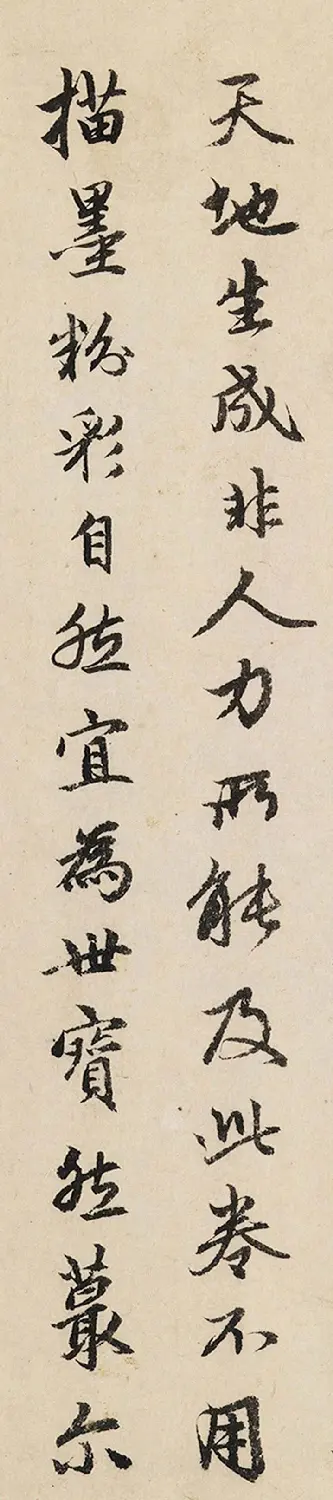 天地生成非人力所能及此卷不用
描墨粉彩自然宜為世寶然蕞尔